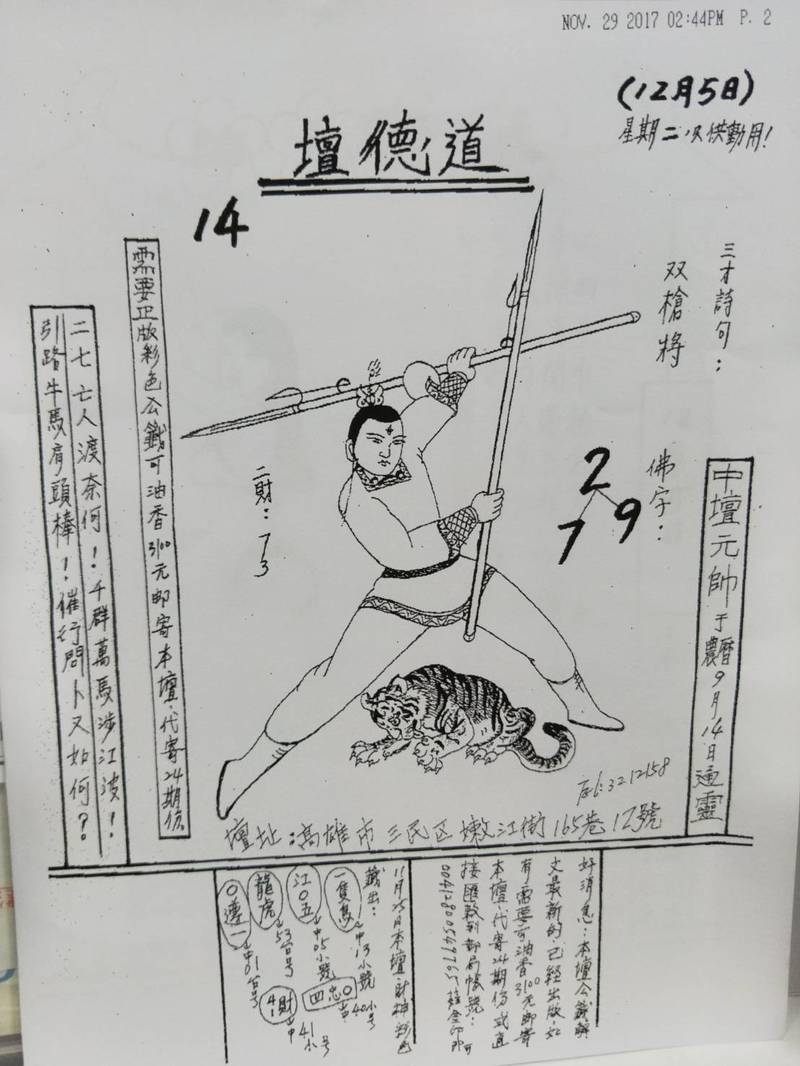 NOV. 29 2017 02:44PM P. 2
(12月5日)
星期二．只供勤用！
壇德道
14
三才詩句：
双槍將
佛字：
2
7 9
中壇元帥于農曆9月14日通靈
二財：73
需要正版彩色公籤可油香3100元邮寄本壇．代寄24期份
二七亡人渡奈何！千群萬馬涉江波！
引路牛馬肩頭棒！催行問卜又如何？
Tel:3212158
壇址：高雄市三民区嫩江街165巷12號
好消息：本壇公籤
文最新的．已經出版．如
有需要可油香3100元邮寄
本壇．代寄24期份或直
接匯款到邮局帳號：
00412800549765
11月25日本壇．財神彩色
籤出：
一隻馬→中13小號
江0五→中05小號
四忠0 40小号
龍虎→53台号
4財→中41小号
0邊一→中01台号